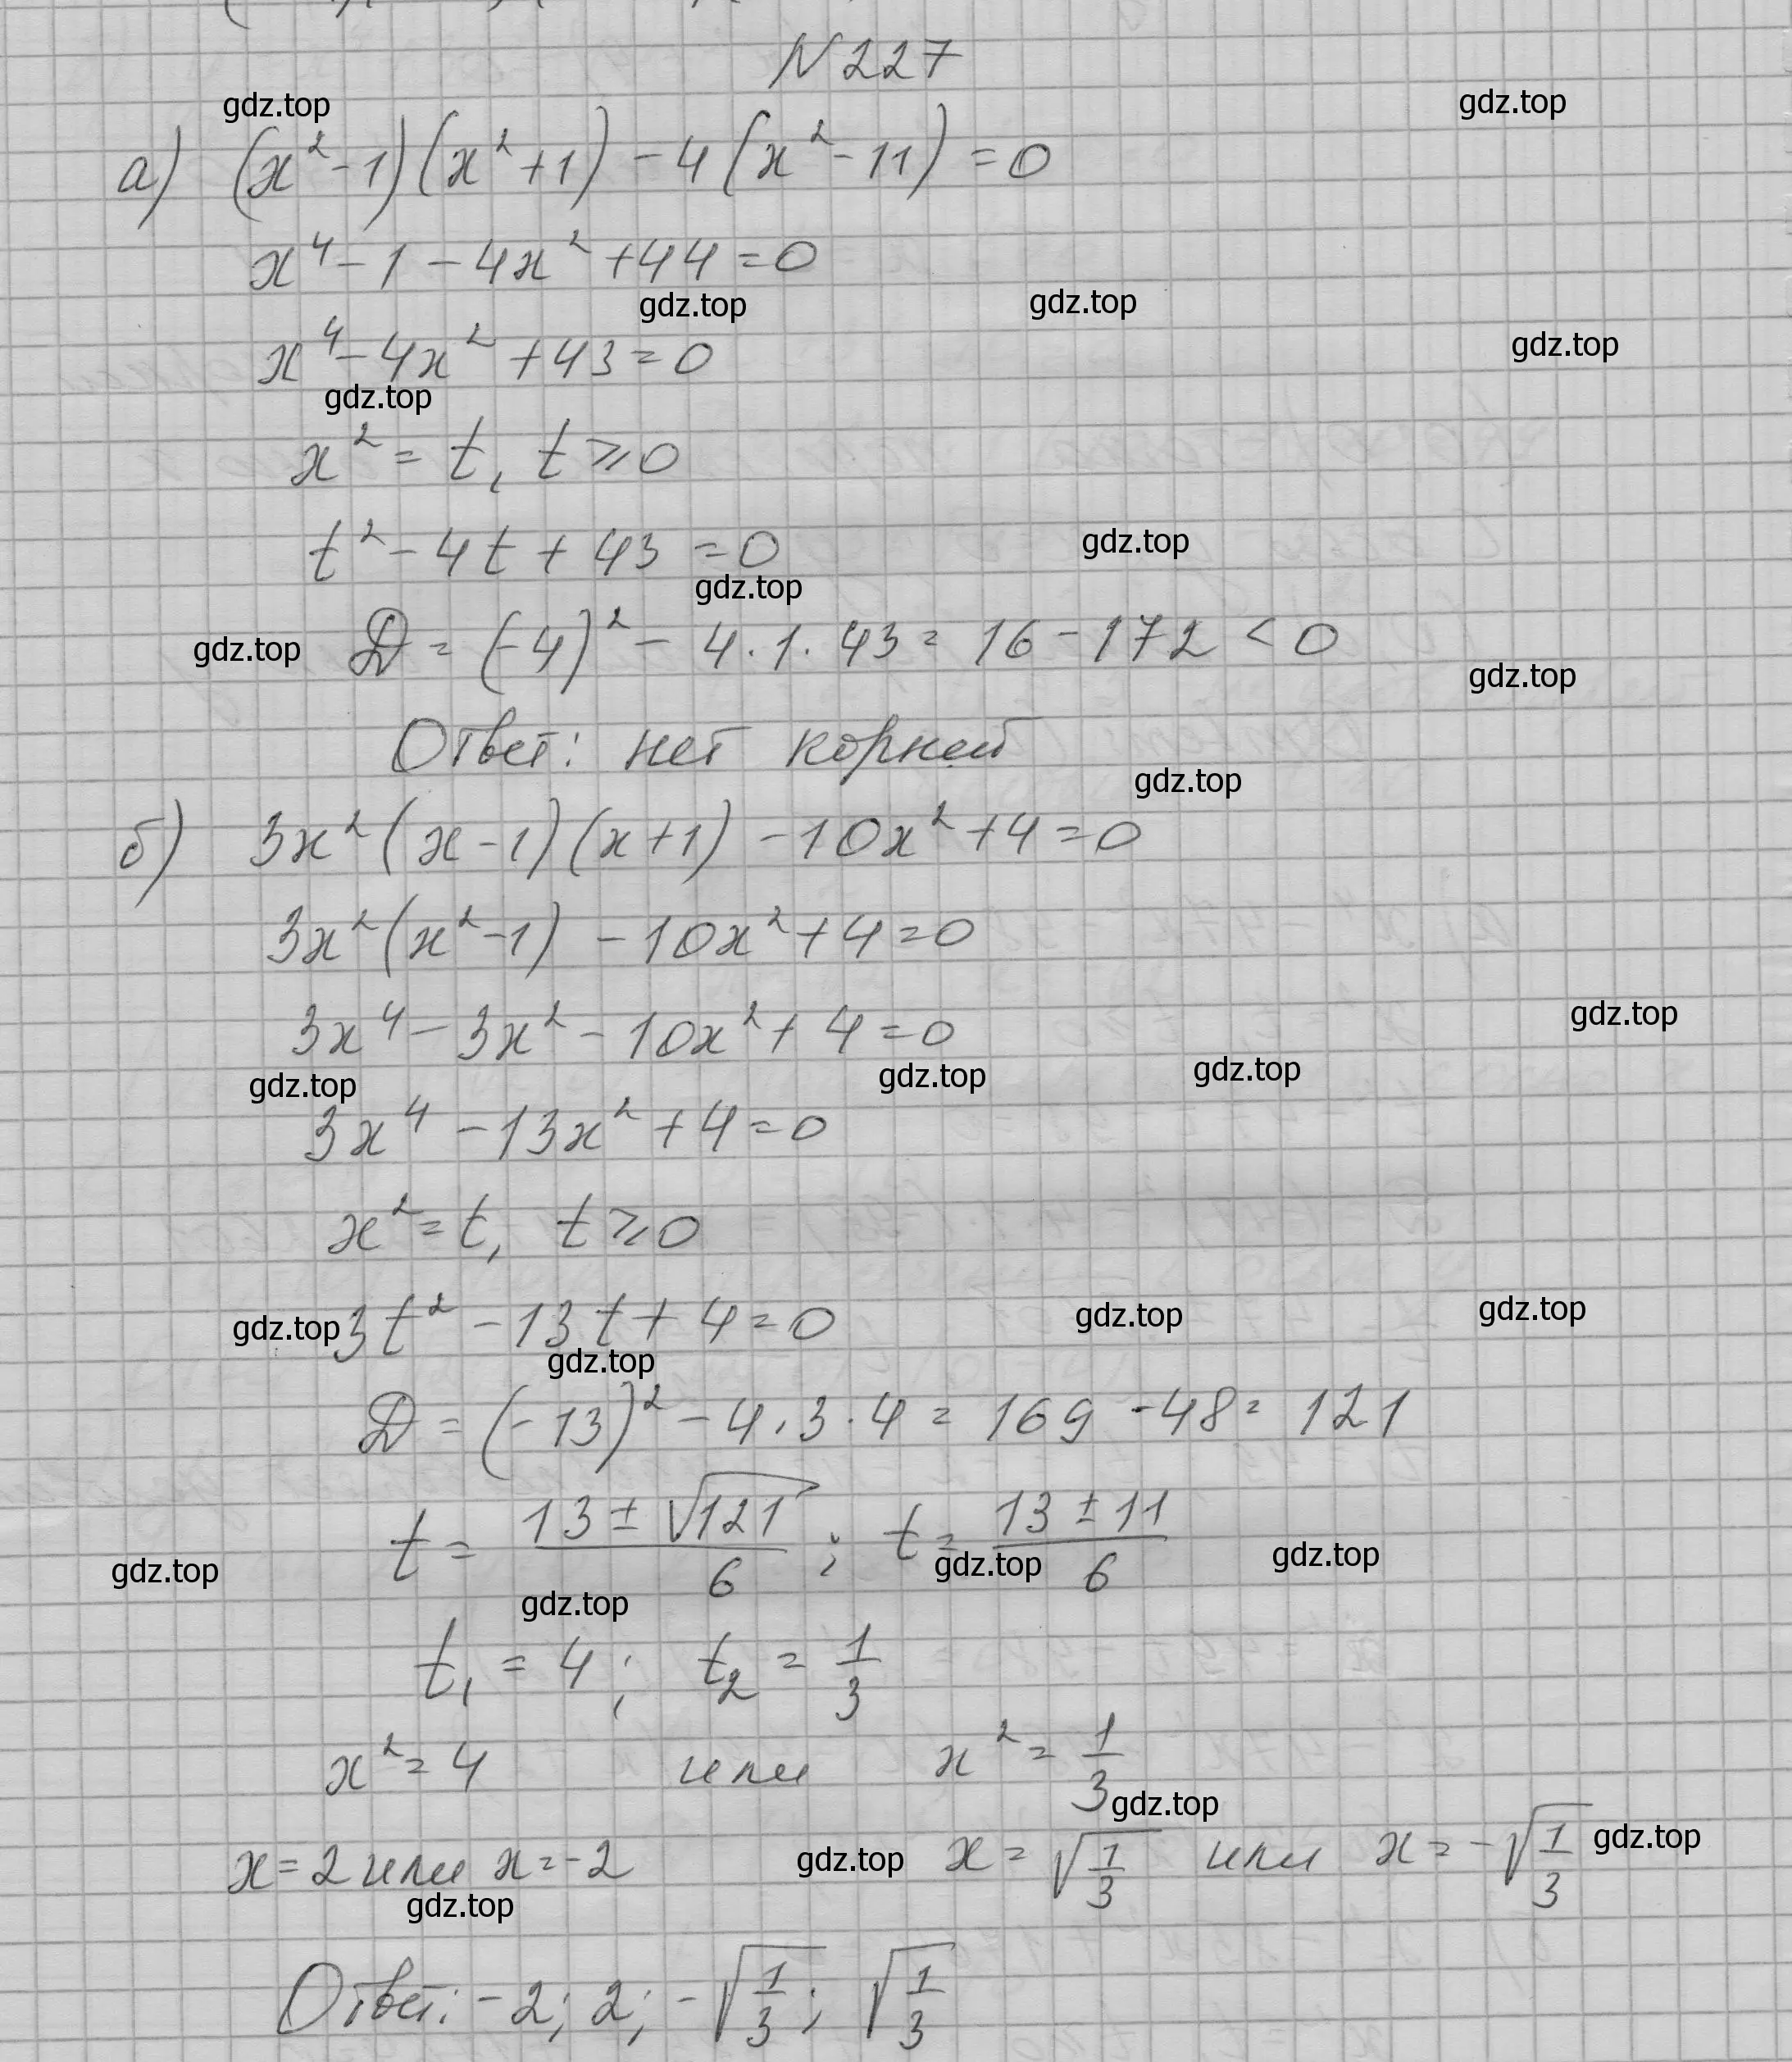 N 227
gdz.top gdz.top
а) (x² - 1)(x² + 1) - 4(x² - 11) = 0
x⁴ - 1 - 4x² + 44 = 0
gdz.top gdz.top
x⁴ - 4x² + 43 = 0 gdz.top
gdz.top
x² = t, t ⩾ 0
t² - 4t + 43 = 0 gdz.top
gdz.top
gdz.top D = (-4)² - 4 · 1 · 43 = 16 - 172 < 0
gdz.top
Ответ: нет корней
gdz.top
б) 3x²(x - 1)(x + 1) - 10x² + 4 = 0
3x²(x² - 1) - 10x² + 4 = 0
3x⁴ - 3x² - 10x² + 4 = 0 gdz.top
gdz.top gdz.top gdz.top
3x⁴ - 13x² + 4 = 0
x² = t, t ⩾ 0
gdz.top 3t² - 13t + 4 = 0 gdz.top gdz.top
gdz.top
D = (-13)² - 4 · 3 · 4 = 169 - 48 = 121
t = (13 ± √121)/6 ; t = (13 ± 11)/6
gdz.top gdz.top gdz.top
gdz.top
t₁ = 4 ; t₂ = 1/3
x² = 4 или x² = 1/3
gdz.top
x = 2 или x = -2 gdz.top x = √(1/3) или x = -√(1/3) gdz.top
gdz.top
Ответ: -2; 2; -√(1/3); √(1/3)